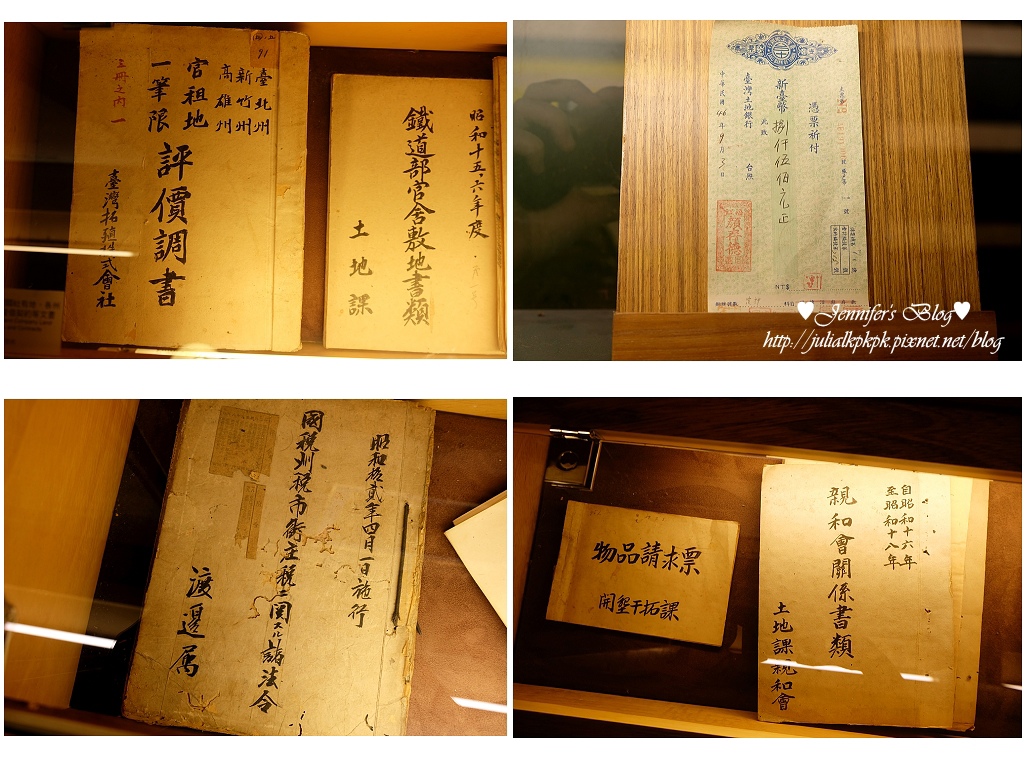 臺北州
新竹州
高雄州
官租地
一筆限
評價調書
臺灣拓殖株式會社
91
昭和十五、六年度
鐵道部官舍敷地書類
土地課
憑票祈付
新臺幣捌仟伍佰元正
此致
臺灣土地銀行 台照
中華民國46年9月3日
♥Jennifer's Blog♥
http://julialkpkpk.pixnet.net/blog
昭和拾貳年四月一日施行
國稅州稅市街庄稅ニ関スル諸法令
渡邊属
物品請求票
開墾干拓課
自昭和十六年
至昭和十八年
親和會關係書類
土地課親和會